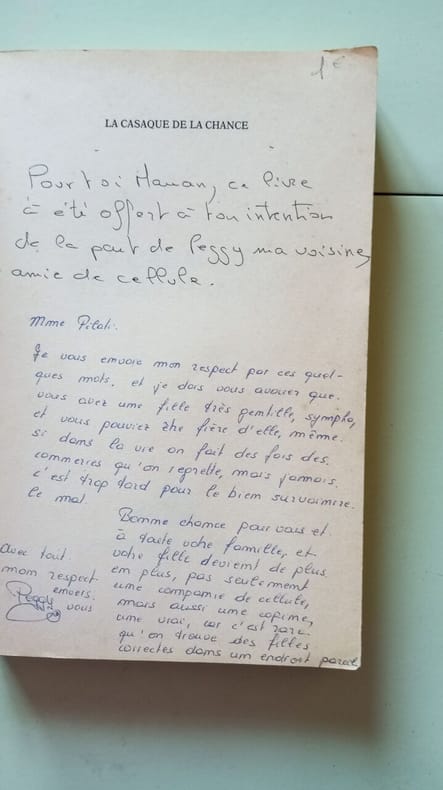 1 €
LA CASAQUE DE LA CHANCE
Pour toi Maman, ce livre
à été offert à ton intention
de la part de Peggy ma voisine,
amie de cellule.
Mme Pilati.
Je vous envoie mon respect par ces quel-
ques mots. et je dois vous avouer que.
vous avez une fille très gentille, sympha,
et vous pouviez être fière d'elle, même.
si dans la vie on fait des fois des.
conneries qu'on regrette, mais jamais.
c'est trop tard pour le bien survaincre.
le mal.
Bonne chance pour vous et
à toute votre famille, et
votre fille devient de plus
en plus, pas seulement
une compamie de cellule,
mais aussi une copine,
une vrai, car c'est rare
qu'on trouve des filles
correctes dans un endroit pareil
avec tout
mon respect
envers.
vous
Peggy